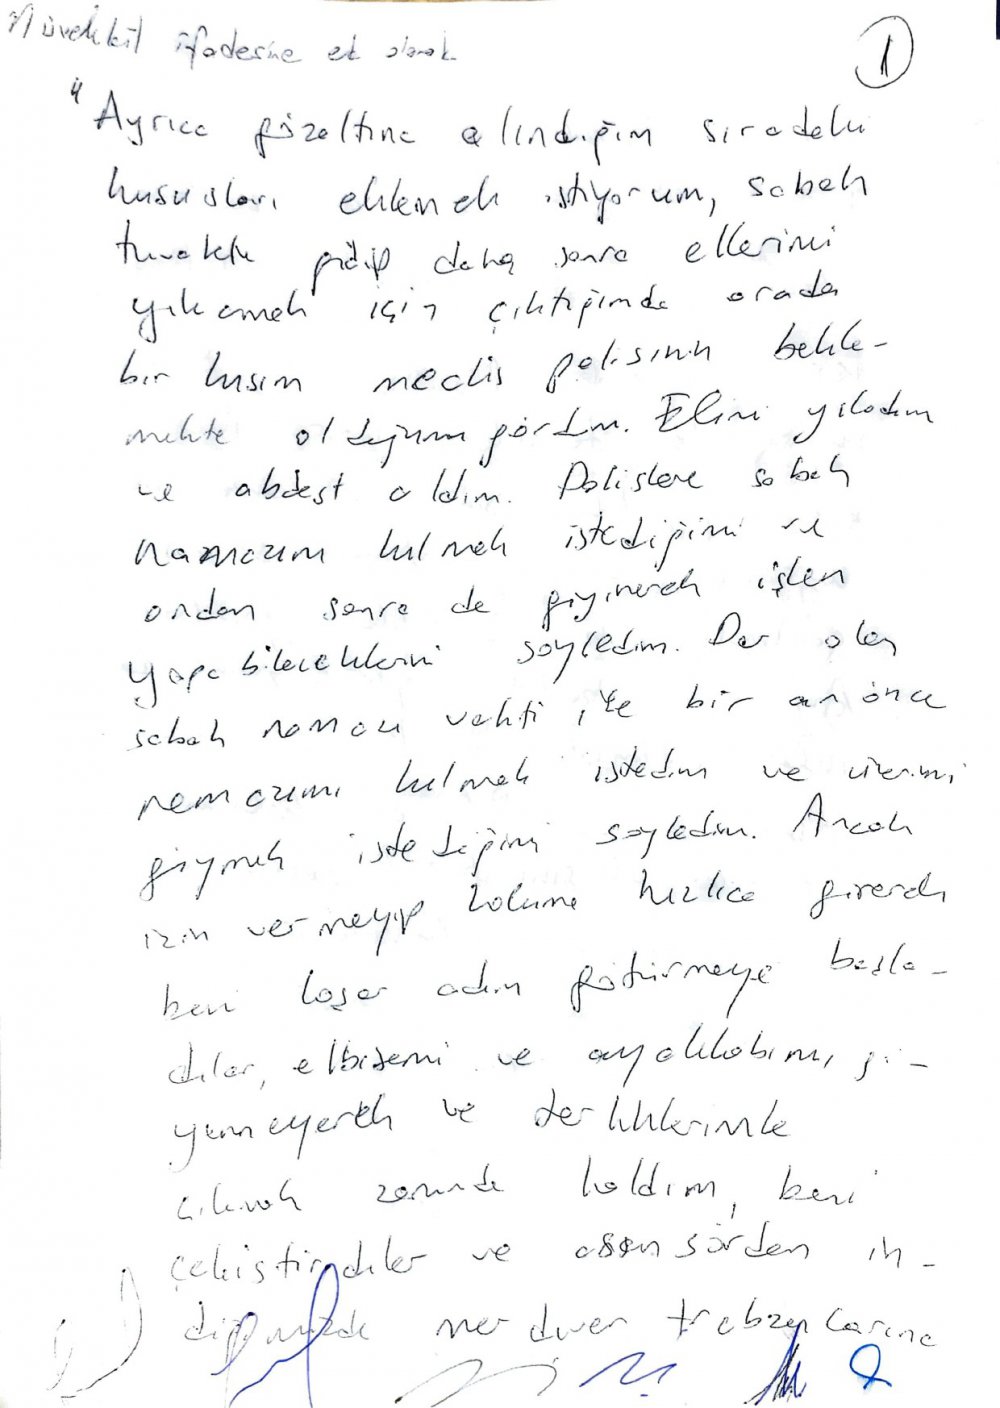 Müvekkil ifadesine ek olarak
1
"Ayrıca gözaltına alındığım sıradaki
hususları eklemek istiyorum, sabah
tuvalete gidip daha sonra ellerimi
yıkamak için çıktığımda orada
bir kısım meclis polisinin bekle-
mekte olduğunu gördüm. Elimi yıkadım
ve abdest aldım. Polislere sabah
namazımı kılmak istediğimi ve
ondan sonra da giyinerek işlem
yapabileceklerini söyledim. Dar olan
sabah namazı vakti içre bir an önce
namazımı kılmak istedim ve üzerimi
giymek istediğimi söyledim. Ancak
izin vermeyip koluma hızlıca girerek
beni koşar adım götürmeye başla-
dılar, elbisemi ve ayakkabımı gi-
yinmeyerek ve terliklerimle
çıkmak zorunda kaldım, beni
çekiştirdiler ve asansörden in-
diğimizde merdiven trabzanlarına